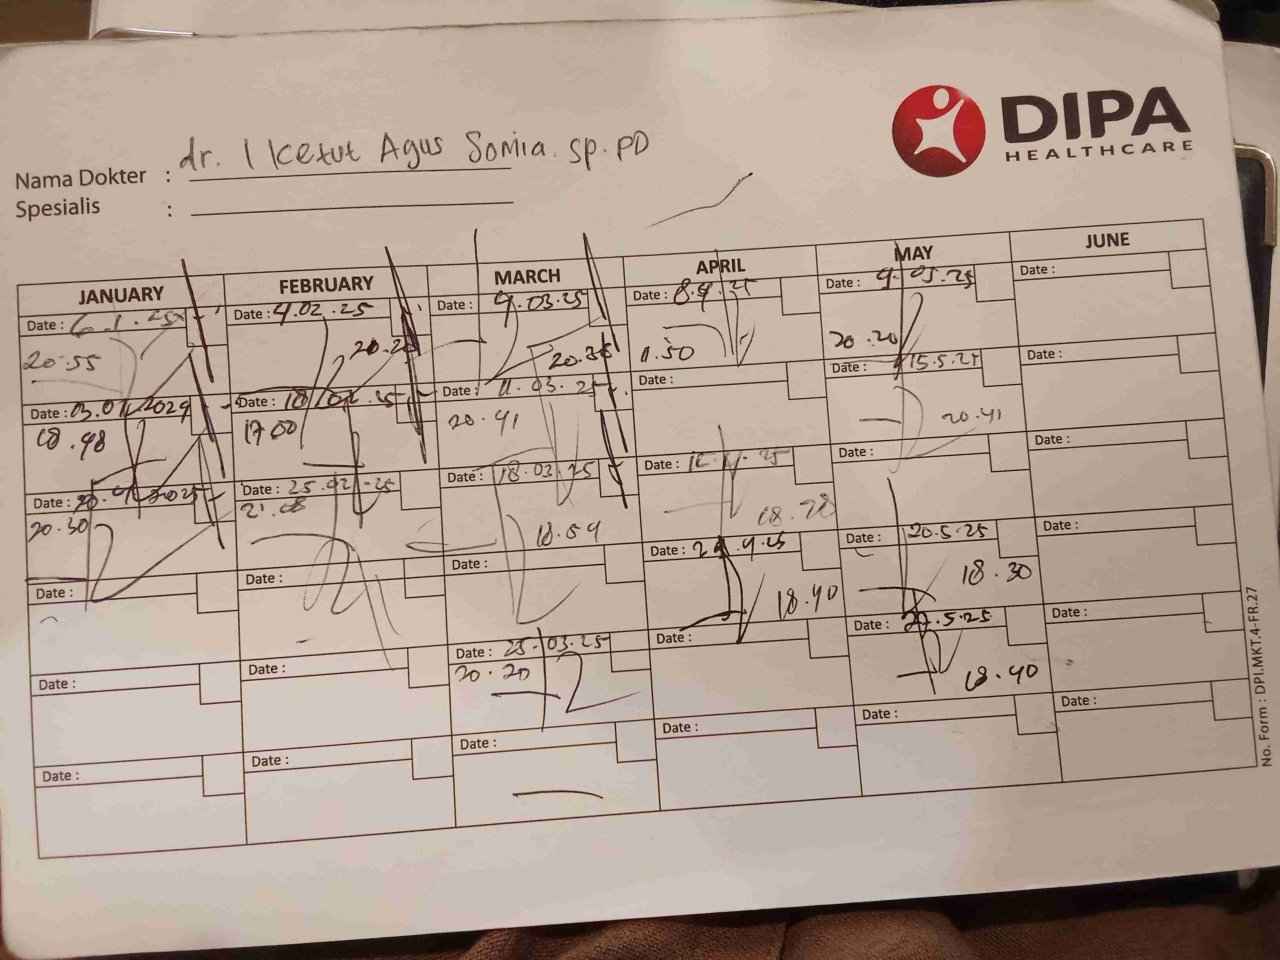 DIPA
HEALTHCARE
Nama Dokter : dr. I Ketut Agus Somia. Sp. PD
Spesialis :
JANUARY FEBRUARY MARCH APRIL MAY JUNE
Date : 6.1.25 Date : 4.02.25 Date : 4.03.25 Date : 8.4.25 Date : 9.05.25 Date :
20.55 20.20 20.35 11.50 20.20
Date : Date : 18.02.25 Date : 11.03.25 Date : Date : 15.5.25 Date :
18.48 17.00 20.41 20.41
Date : Date : 25.02.25 Date : 18.03.25 Date : Date : Date :
20.30 21.08 18.59 18.28
Date : Date : Date : Date : Date : 20.5.25 Date :
18.40 18.30
Date : Date : Date : 25.03.25 Date : Date : 27.5.25 Date :
20.20 18.40
Date : Date : Date : Date : Date : Date :
No. Form : DPI.MKT.4-FR.27